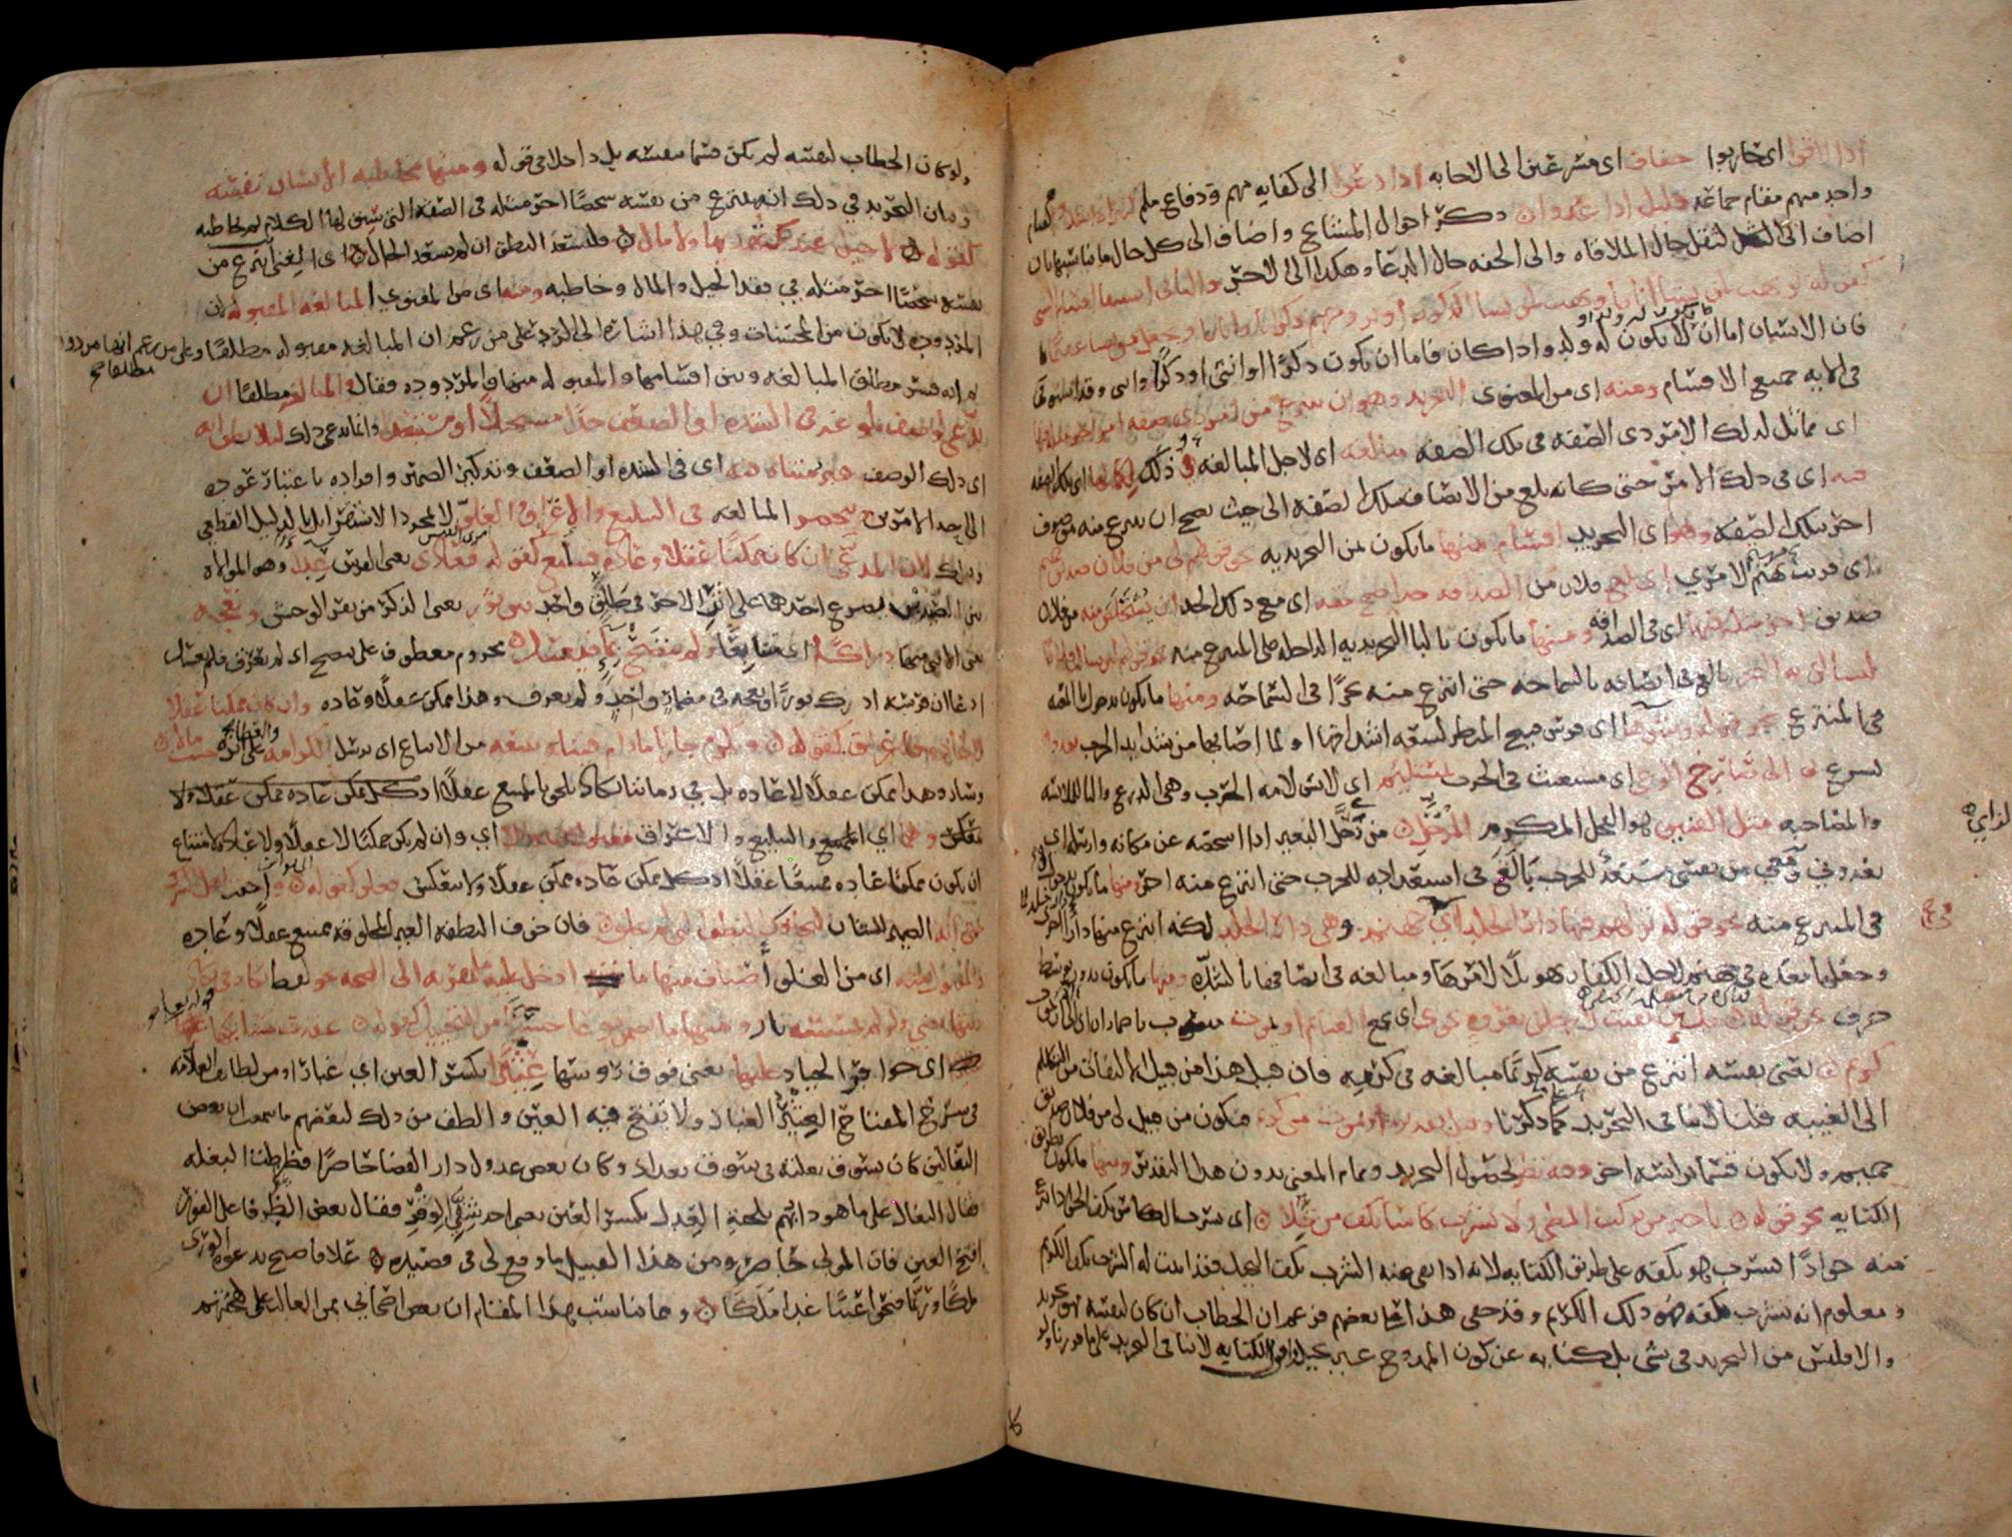 اذا لاقوا اي حاربوا خفاف اى مسرعين الى الاجابه اذا دعوا الى كفايه مهم ودفاع ملم
واحد منهم مقام جماعة قليل اذا عدوا ذكر احوال المشايخ واضاف الى كل حال ما يناسبها بان
اضاف الى الثقل حال الملاقاه والى الخفه حال الدعا وهكذا الى الاخر والثانى استيفا اقسام الشى
كقوله يهب لمن يشا اناثا ويهب لمن يشا الذكور او يزوجهم ذكرانا واناثا ويجعل من يشا عقيما
فان الانسان اما ان لا يكون له ولد واذا كان فاما ان يكون ذكرا او انثى او ذكرا وانثى وقد
فى الايه جميع الاقسام ومنه اى من المعنوى التجريد وهو ان ينتزع من امر ذى صفه امر اخر مثله فيها
اى مماثل لذلك الامر ذى الصفه فى تلك الصفه مبالغه اى لاجل المبالغه وذلك لكمالها اى تلك الصفه
فيه اى فى ذلك الامر حتى كانه بلغ من الاتصاف بتلك الصفه الى حيث يصح ان ينتزع منه موصوف
اخر بتلك الصفه وهو اى التجريد اقسام منها ما يكون بمن التجريديه نحو قولهم لى من فلان صديق حميم
اى قريب يهتم لامره اى بلغ فلان من الصداقه حدا صح معه اى مع ذلك الحد ان يستخلص منه من فلان
صديق اخر مثله فيها اى فى الصداقه ومنها ما يكون بالبا التجريديه الداخله على المنتزع منه نحو قولهم لئن سالت فلانا
لتسالن به البحر بالغ فى اتصافه بالسماحه حتى انتزع منه بحرا فى السماحه ومنها ما يكون بدخول با المعيه
فى المنتزع نحو قوله وشوها اى فرس قبيح المنظر لسعه اشداقها او لما اصابها من شدايد الحرب تعدو
تسرع بى الى صارخ الوغى اى مستغيث فى الحرب بمستلئم اى لابس لامه الحرب وهى الدرع والبا للملابسه
والمصاحبه مثل الفنيق هو الفحل المكرم المرحل من رحل البعير اذا اشخصه عن مكانه وارسله اى
تعدو بى ومعى من نفسى مستعد للحرب بالغ فى استعداده للحرب حتى انتزع منه اخر ومنها ما يكون بدخول فى
فى المنتزع منه نحو قوله لهم فيها دار الخلد اى فى جهنم وهى دار الخلد لكنه انتزع منها دارا اخرى
وجعلها معده فى جهنم لاجل الكفار تهويلا لامرها ومبالغه فى اتصافها بالشده ومنها ما يكون بدون توسط
حرف نحو قوله فلئن بقيت لارحلن بغزوه تحوى اى تجمع الغنايم او يموت منصوب باضمار ان اى الا ان يموت
كريم يعنى نفسه انتزع من نفسه كريما مبالغه فى كرمه فان قيل هذا من قبيل الالتفات من التكلم
الى الغيبه قلنا لا ينافى التجريد كما ذكرنا وقيل تقديره او يموت منى كريم فيكون من قبيل لى من فلان صديق
حميم ولا يكون قسما براسه اخر وفيه نظر لحصول التجريد وتمام المعنى بدون هذا التقدير ومنها ما يكون بطريق
الكنايه نحو قوله يا خير من يركب المطى ولا يشرب كاسا بكف من بخلا اى يشرب الكاس بكف الجواد انتزع
منه جوادا يشرب هو بكفه على طريق الكنايه لانه اذا نفى عنه الشرب بكف البخيل فقد اثبت له الشرب بكف الكريم
ومعلوم انه يشرب بكفه فهو ذلك الكريم وقد خفى هذا على بعضهم فزعم ان الخطاب ان كان لنفسه فهو تجريد
والا فليس من التجريد فى شى بل كنايه عن كون الممدوح غير بخيل واقول الكنايه لا تنافى التجريد على ما قررنا ولو
ولو كان الخطاب لنفسه لم يكن قسما بنفسه بل داخلا فى قوله ومنها مخاطبه الانسان نفسه
وبيان التجريد فى ذلك انه ينتزع من نفسه شخصا اخر مثله فى الصفه التى سيق لها الكلام ثم يخاطبه
كقوله لا خيل عندك تهديها ولا مال فليسعد النطق ان لم يسعد الحال اى الغنى انتزع من
نفسه شخصا اخر مثله فى فقد الخيل والمال وخاطبه ومنه اى من المعنوي المبالغه المقبوله لان
المردوده لا يكون من المحسنات وفى هذا اشاره الى الرد على من زعم ان المبالغه مقبوله مطلقا وعلى من زعم انها مردوده
مطلقا
ثم انه فسر مطلق المبالغه وبين اقسامها والمقبوله منها والمردوده فقال والمبالغه مطلقا ان
يدعى لوصف بلوغه فى الشده او الضعف حدا مستحيلا او مستبعدا وانما يدعى ذلك ليلا يظن انه
اى ذلك الوصف غير متناه فيه اى فى الشده او الضعف وتذكير الضمير وافراده باعتبار عوده
الى احد الامرين وتنحصر المبالغه فى التبليغ والاغراق والغلو لا بمجرد الاستقرا بل بالدليل القطعى
وذلك لان المدعى ان كان ممكنا عقلا وعادة فتبليغ كقوله فعادى يعنى الفرس عداء وهو الموالاه
بين الصيدين يصرع احدهما على اثر الاخر فى طلق واحد بين ثور يعنى الذكر من بقر الوحش ونعجه
يعنى الانثى منها دراكا اى متتابعا ولم ينضح بماء فيغسل مجزوم معطوف على ينضح اى لم يعرق فلم يغسل
ادعا ان فرسه ادرك ثورا ونعجه فى مضمار واحد ولم يعرق وهذا ممكن عقلا وعاده وان كان ممكنا عقلا
لا عاده فاغراق كقوله ونكرم جارنا ما دام فينا ونتبعه من الاتباع اى نرسل الكرامه على اثره حيث مالا
وسار وهذا ممكن عقلا لا عاده بل فى زماننا يكاد يلحق بالممتنع عقلا اذ كل ممكن عاده ممكن عقلا ولا
ينعكس وهما اي التبليغ والاغراق مقبولان والا اي وان لم يكن ممكنا لا عقلا ولا عاده لامتناع
ان يكون ممكنا عاده ممتنعا عقلا اذ كل ممكن عاده ممكن عقلا ولا ينعكس فغلو كقوله واخفت اهل الشرك
حتى انه الضمير للشان لتخافك النطف التى لم تخلق فان خوف النطفه الغير المخلوقه ممتنع عقلا وعاده
والمقبول منه اى من الغلو اصناف منها ما ادخل عليه ما يقربه الى الصحه نحو لفظ يكاد فى يكاد
زيتها يضي ولو لم تمسسه نار ومنها ما تضمن نوعا حسنا من التخييل كقوله عقدت سنابكها عليها
اى حوافر الجياد عليها يعنى فوق رؤسها عثيرا بكسر العين اي غبارا ومن لطايف العلامه
فى شرح المفتاح العثير الغبار ولا تفتح فيه العين والطف من ذلك لبعضهم ما سمعت ان بعض
البغالين كان يسوق بغلته فى سوق بغداد وكان بعض عدول دار القضا حاضرا فضرطت البغله
فقال البغال على ما هو دابهم بلحية العدل بكسر العين يعنى احد شقى الوقر فقال بعض الظرفا على الفور
افتح العين فان المولى حاضر ومن هذا القبيل ما وقع لى فى قصيده علا فاصبح يدعوه الورى
ملكا وريثما فتحوا عينا غدا ملكا ومما يناسب هذا المقام ان بعض اصحابى ممن الغالب على لهجتهم